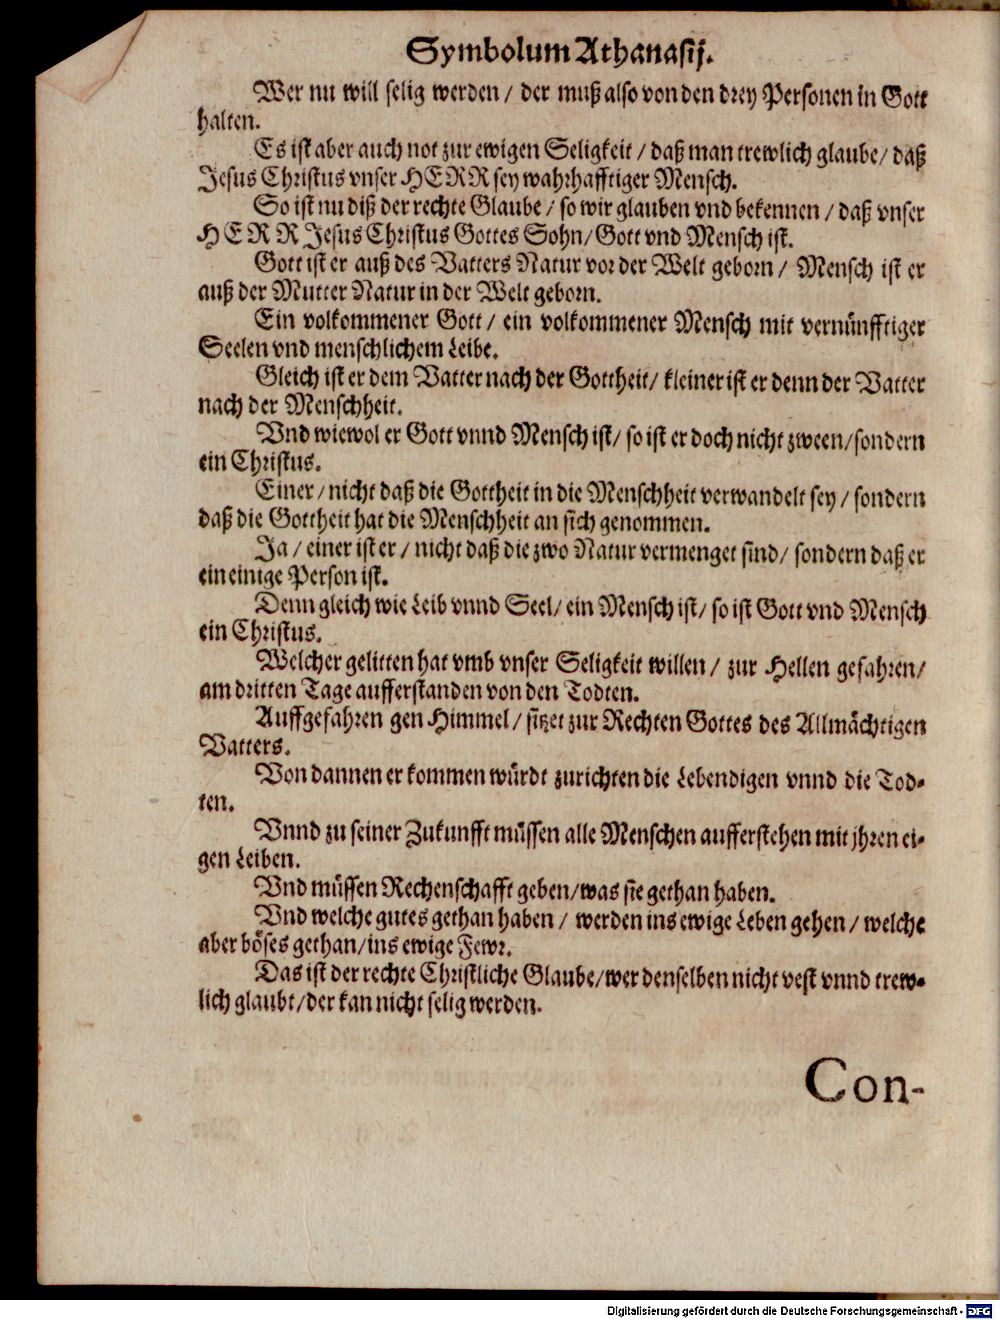 Symbolum Athanasij.
Wer nu will selig werden / der muß also von den drey Personen in Gott
halten.
Es ist aber auch not zur ewigen Seligkeit / daß man trewlich glaube / daß
Jesus Christus vnser HERR sey wahrhafftiger Mensch.
So ist nu diß der rechte Glaube / so wir glauben vnd bekennen / daß vnser
HERR Jesus Christus Gottes Sohn / Gott vnd Mensch ist.
Gott ist er auß des Vatters Natur vor der Welt geborn / Mensch ist er
auß der Mutter Natur in der Welt geborn.
Ein volkommener Gott / ein volkommener Mensch mit vernünfftiger
Seelen vnd menschlichem Leibe.
Gleich ist er dem Vatter nach der Gottheit / kleiner ist er denn der Vatter
nach der Menschheit.
Vnd wiewol er Gott vnnd Mensch ist / so ist er doch nicht zween / sondern
ein Christus.
Einer / nicht daß die Gottheit in die Menschheit verwandelt sey / sondern
daß die Gottheit hat die Menschheit an sich genommen.
Ja / einer ist er / nicht daß die zwo Natur vermenget sind / sondern daß er
ein einige Person ist.
Denn gleich wie Leib vnnd Seel / ein Mensch ist / so ist Gott vnd Mensch
ein Christus.
Welcher gelitten hat vmb vnser Seligkeit willen / zur Hellen gefahren /
am dritten Tage aufferstanden von den Todten.
Auffgefahren gen Himmel / sitzet zur Rechten Gottes des Allmächtigen
Vatters.
Von dannen er kommen würdt zurichten die Lebendigen vnnd die Tod-
ten.
Vnnd zu seiner Zukunfft müssen alle Menschen aufferstehen mit jhren ei-
gen Leiben.
Vnd müssen Rechenschafft geben / was sie gethan haben.
Vnd welche gutes gethan haben / werden ins ewige Leben gehen / welche
aber böses gethan / ins ewige Fewr.
Das ist der rechte Christliche Glaube / wer denselben nicht vest vnnd trew-
lich glaubt / der kan nicht selig werden.
Con-
Digitalisierung gefördert durch die Deutsche Forschungsgemeinschaft - DFG